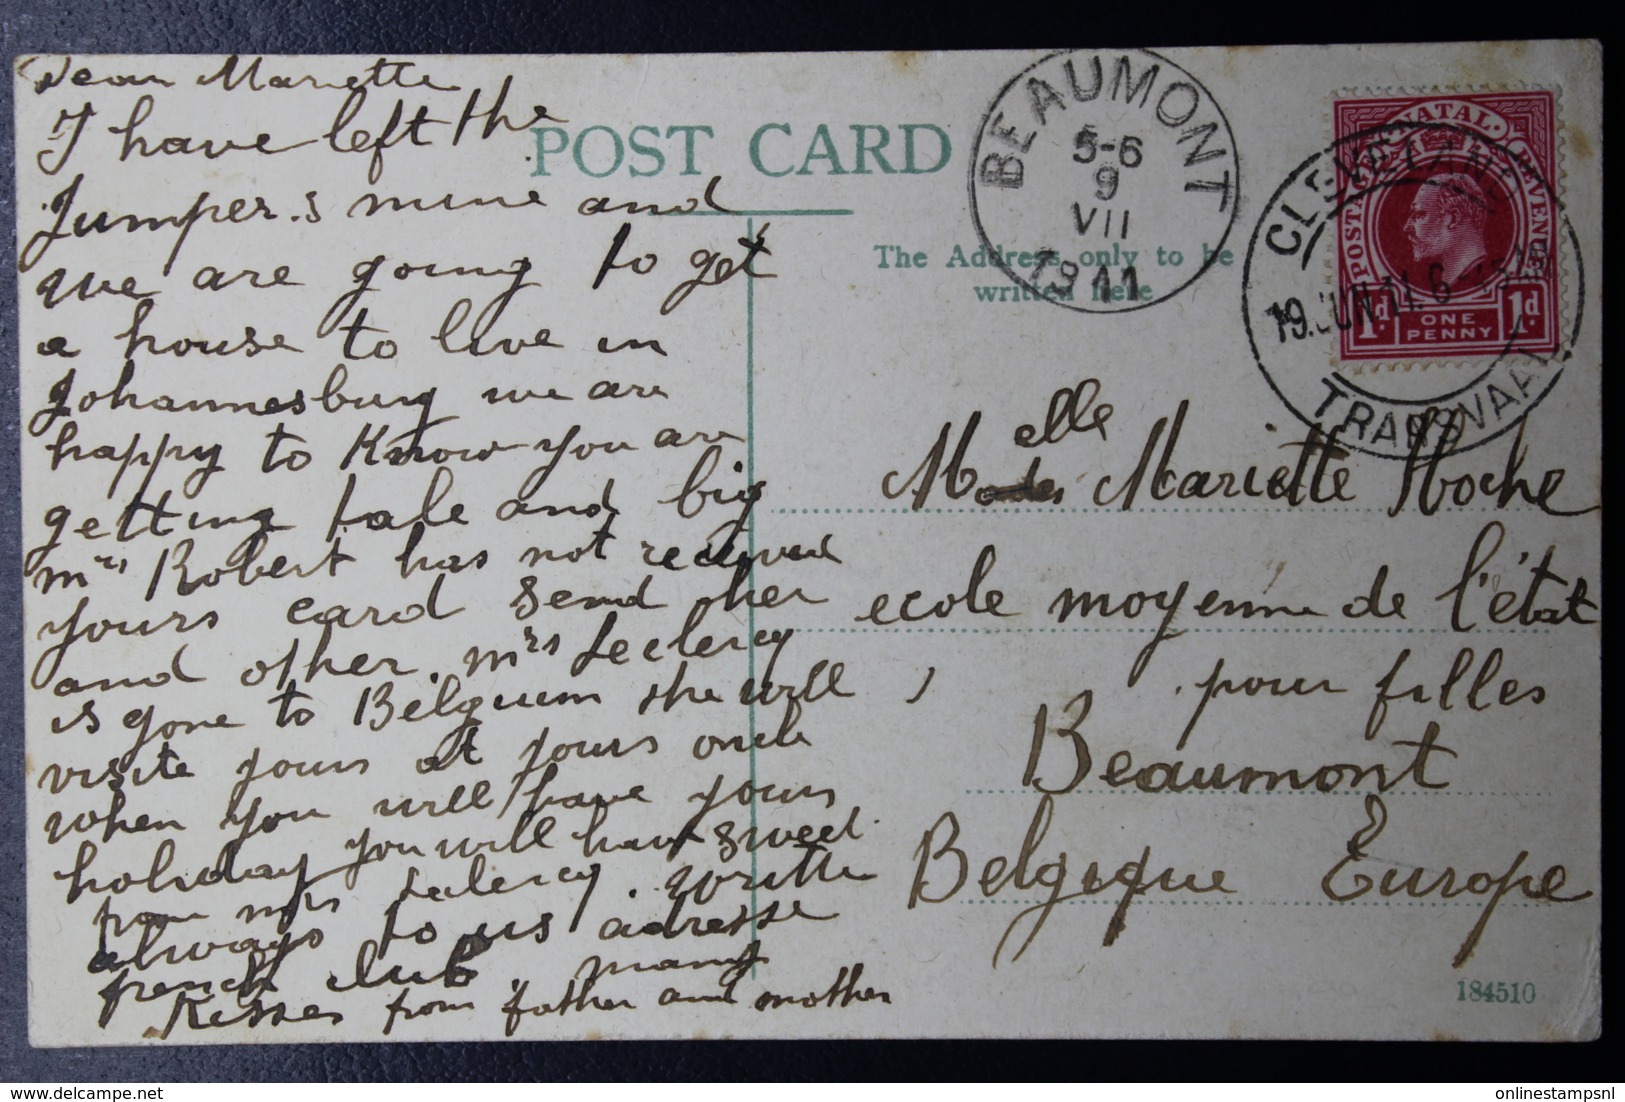 Dear Mariette
I have left the
Jumper.s mine and
we are going to get
a house to live in
Johannesburg we are
happy to Know you are
getting tale and big
mrs Robert has not received
yours card send her
and other. mrs Leclercq
is gone to Belgium she will
visite yours at yours oncle
when you will have yours
holiday you will have sweet
from mrs Leclercq. writte
always to us adresse
french club. many
Kisses from father and mother
POST CARD
The Address only to be
written here
BEAUMONT
5-6
9
VII
1911
CLEVELAND
19.JUN.11.6
TRANSVAAL
NATAL.
POSTAGE
REVENUE
1d
ONE
PENNY
1d
Melle Mariette Hoche
ecole moyenne de l'état
pour filles
Beaumont
Belgique Europe
184510
onlinestampsnl